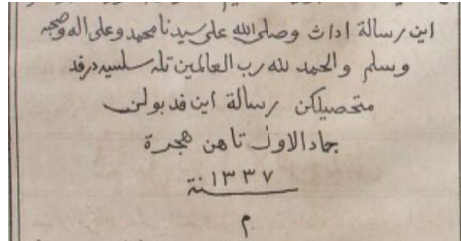 اين رسالة اداث وصلى الله على سيدنا محمد وعلى اله وصحبه
وسلم والحمد لله رب العالمين تله سلسيه درفد
متحصيلكن رسالة اين فد بولن
جمادالاول تاهن هجرة
سنة ١٣٣٧
م